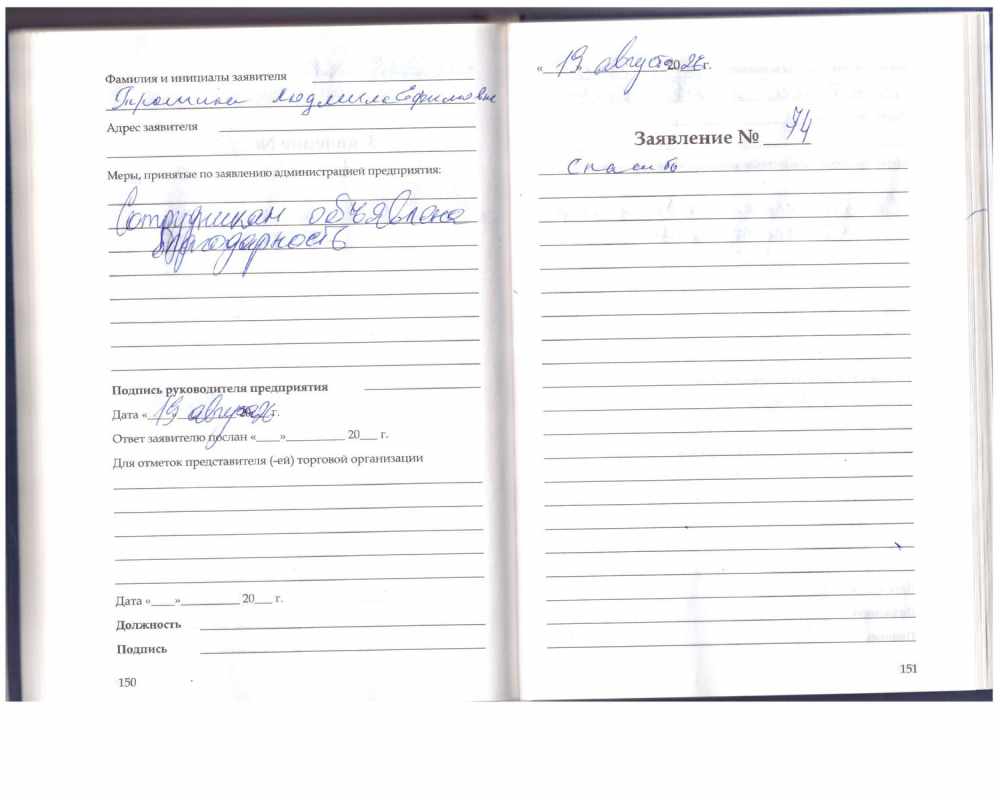 Фамилия и инициалы заявителя
Трошина Людмила Ефимовна
Адрес заявителя
Меры, принятые по заявлению администрацией предприятия:
Сотрудникам объявлена
благодарность
Подпись руководителя предприятия
Дата «19 августа 2026г.
Ответ заявителю послан «____»__________ 20___ г.
Для отметок представителя (-ей) торговой организации
Дата «____»__________ 20___ г.
Должность
Подпись
150
«19 августа 2026г.
Заявление № 74
Спасибо
151